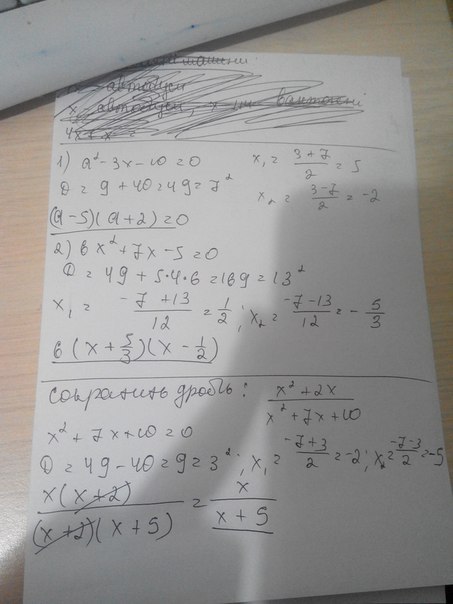 автобуси
x автобуси, x
4x + x =
1) a² - 3x - 10 = 0 x₁ = (3 + 7)/2 = 5
D = 9 + 40 = 49 = 7² x₂ = (3 - 7)/2 = -2
(a - 5)(a + 2) = 0
2) 6x² + 7x - 5 = 0
D = 49 + 5·4·6 = 169 = 13²
x₁ = (-7 + 13)/12 = 1/2; x₂ = (-7 - 13)/12 = -5/3
6(x + 5/3)(x - 1/2)
сократить дробь: (x² + 2x)/(x² + 7x + 10)
x² + 7x + 10 = 0
D = 49 - 40 = 9 = 3²; x₁ = (-7 + 3)/2 = -2; x₂ = (-7 - 3)/2 = -5
x(x + 2)/((x + 2)(x + 5)) = x/(x + 5)